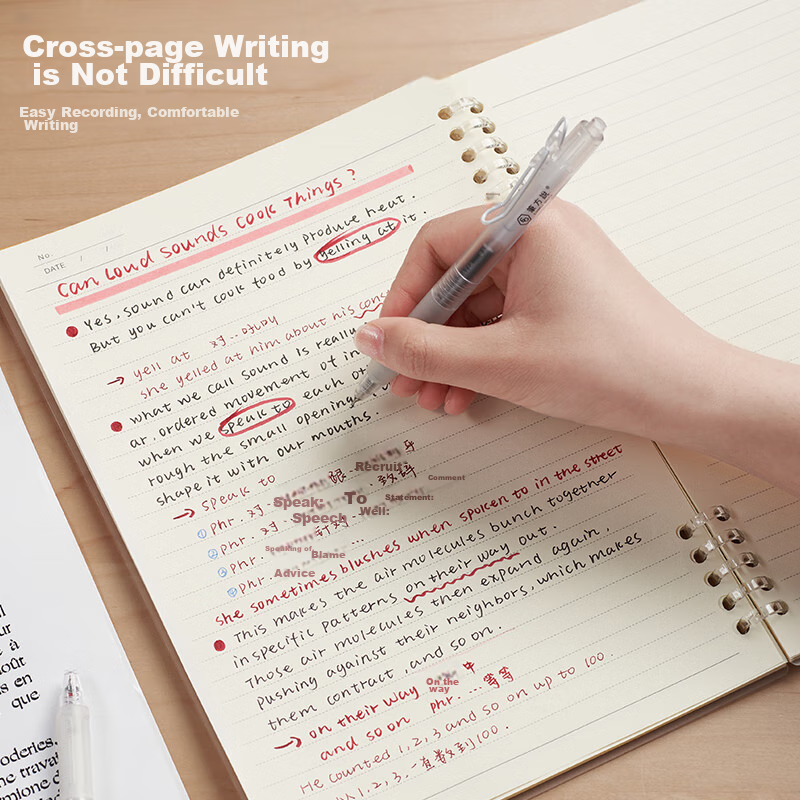 Cross-page Writing
is Not Difficult
Easy Recording, Comfortable
Writing
No.
DATE / /
Can Loud sounds cook Things?
Yes. sound can definitely produce heat.
But you can't cook food by yelling at it.
→ yell at 对...
she yelled at him about his cons
what we call sound is really
ar, ordered movement of
when we speak to each
rough the small opening
shape it with our mouths.
→ speak to
Recruit
Comment
① phr. 对
Speak:
To
Statement:
② phr. 对
Speech
Well:
针对
③ phr.
Speaking of
Blame
④ phr.
Advice
she sometimes blushes when spoken to in the street
This makes the air molecules bunch together
in specific patterns on their way out.
Those air molecules then expand again,
pushing against their neighbors, which makes
them contract, and so on.
→ on their way
On the
way
中
and so on phr. ... 等等
He counted 1, 2, 3 and so on up to 100.
1, 2, 3, 一直数到100.
筆方說
ur
à
oût
s en
que
oderies,
ne travai
mione d